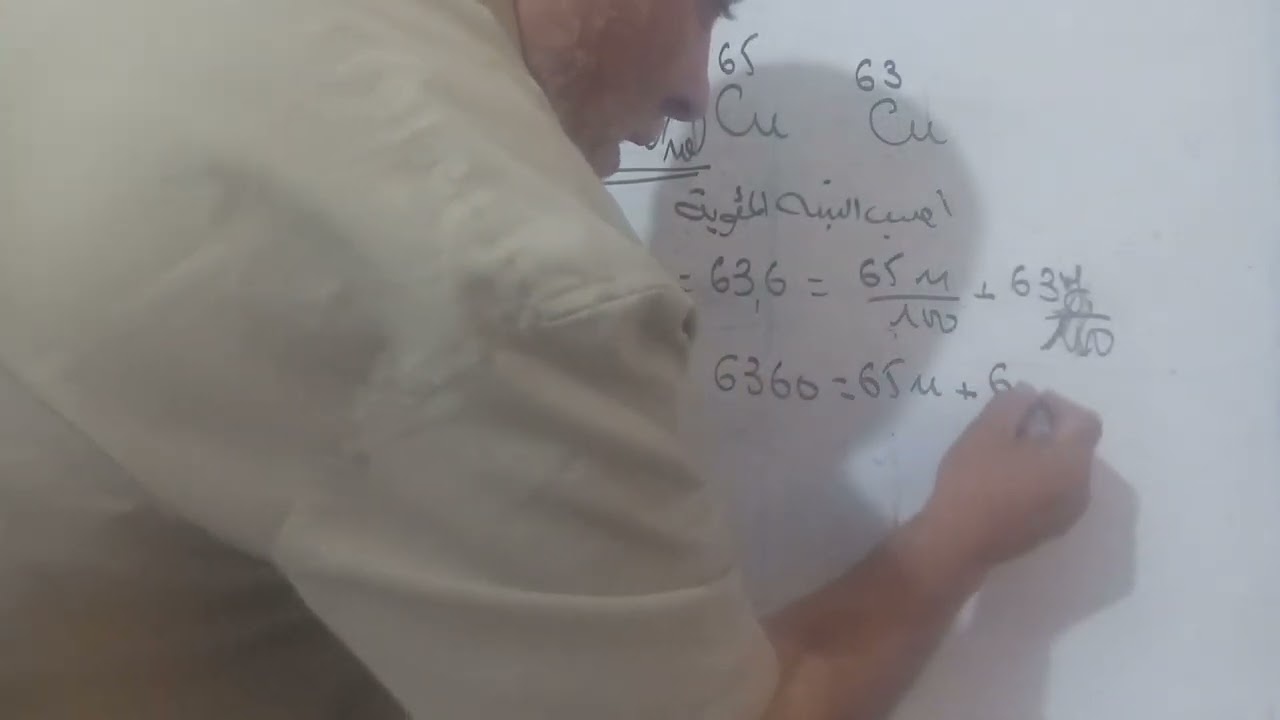 65 63
Cu Cu
أحسب النسبة المئوية
= 63,6 = 65x/100 + 63y/100
6360 = 65x + 6